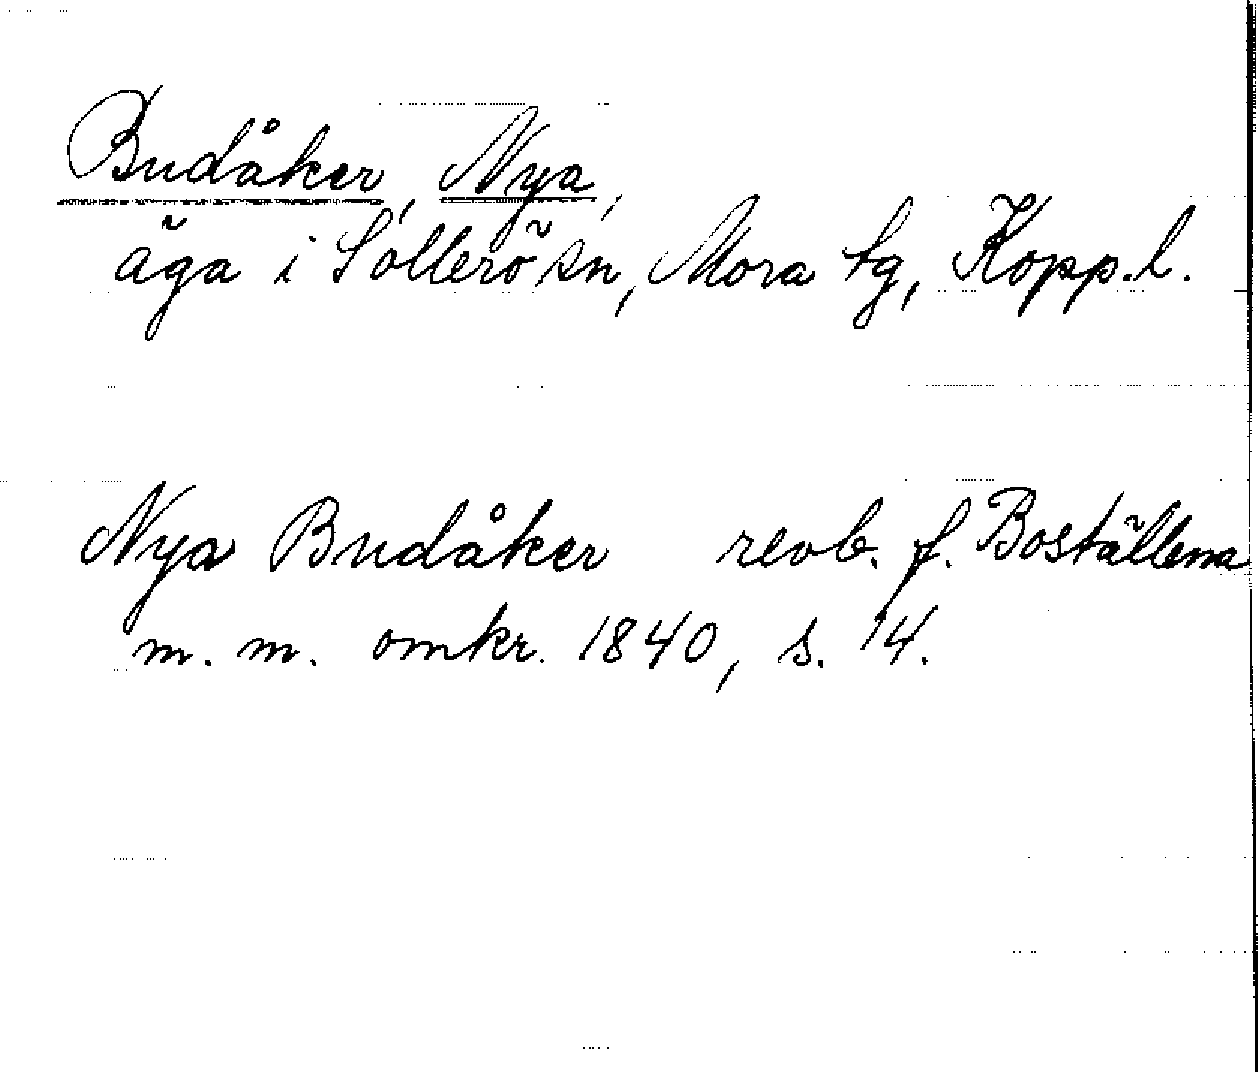 Budåker, Nya,
äga i Sollerö sn, Mora tg, Kopp.l.
Nya Budåker revb. f. Boställena
m. m. omkr. 1840, s. 14.